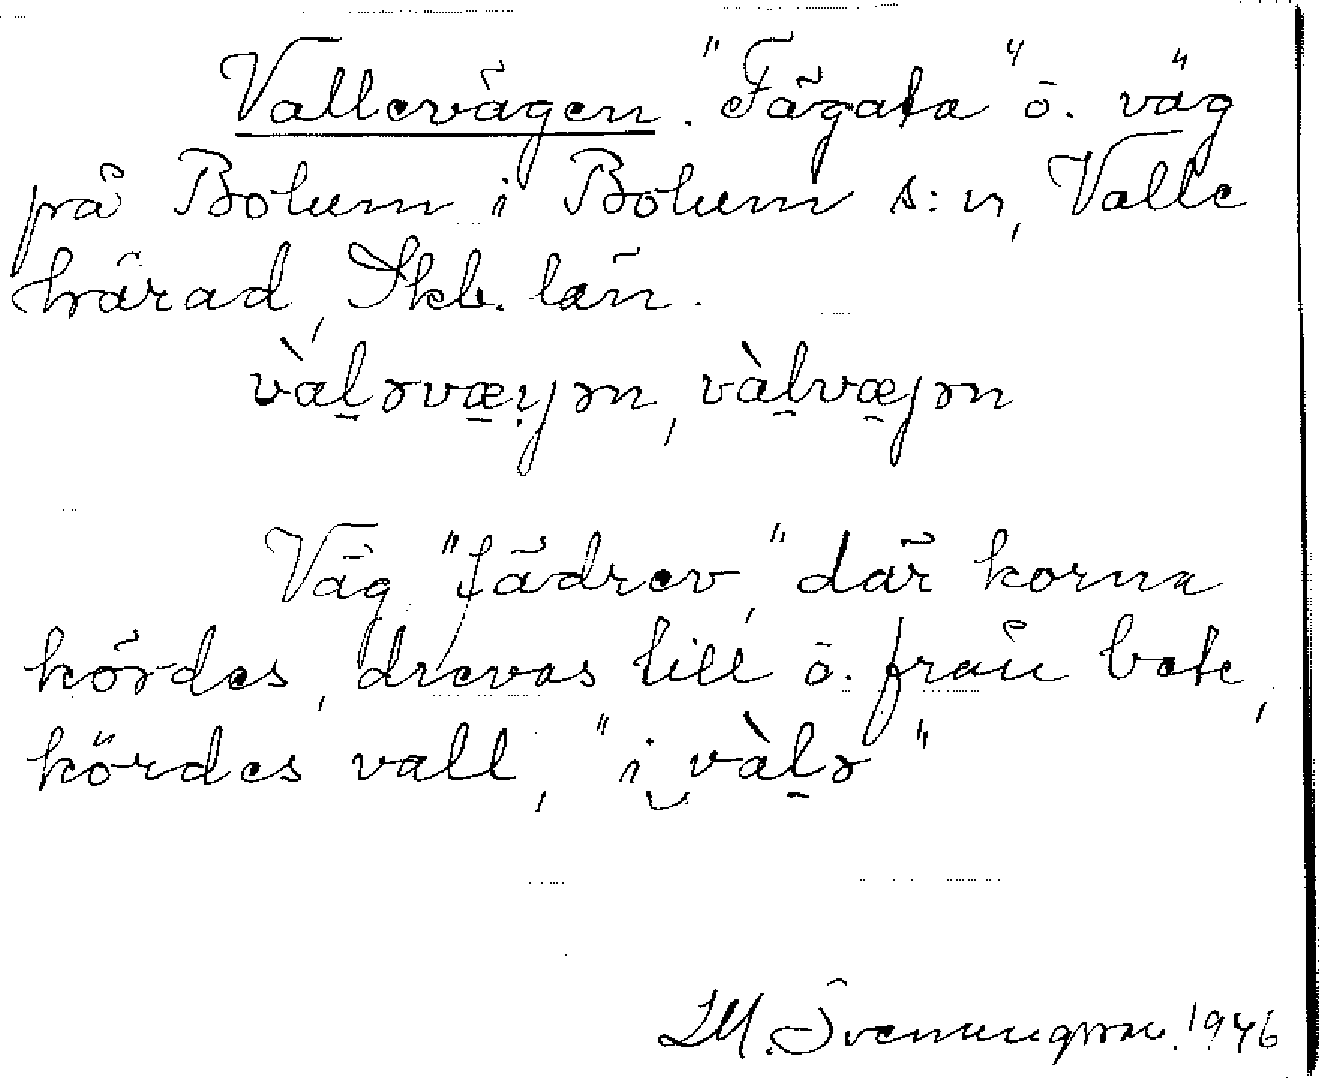 Vallevägen. "Fägata" o. väg
på Bolum i Bolum s:n, Valle
härad, Skb. län.
vàḻəvæ̱ɣən, vàḻvæ̱ɣən
Väg "fädrev," där korna
kördes, drevas till o. från bete,
kördes vall, "i‿vàḻə"
I.M. Svenungsson. 1946